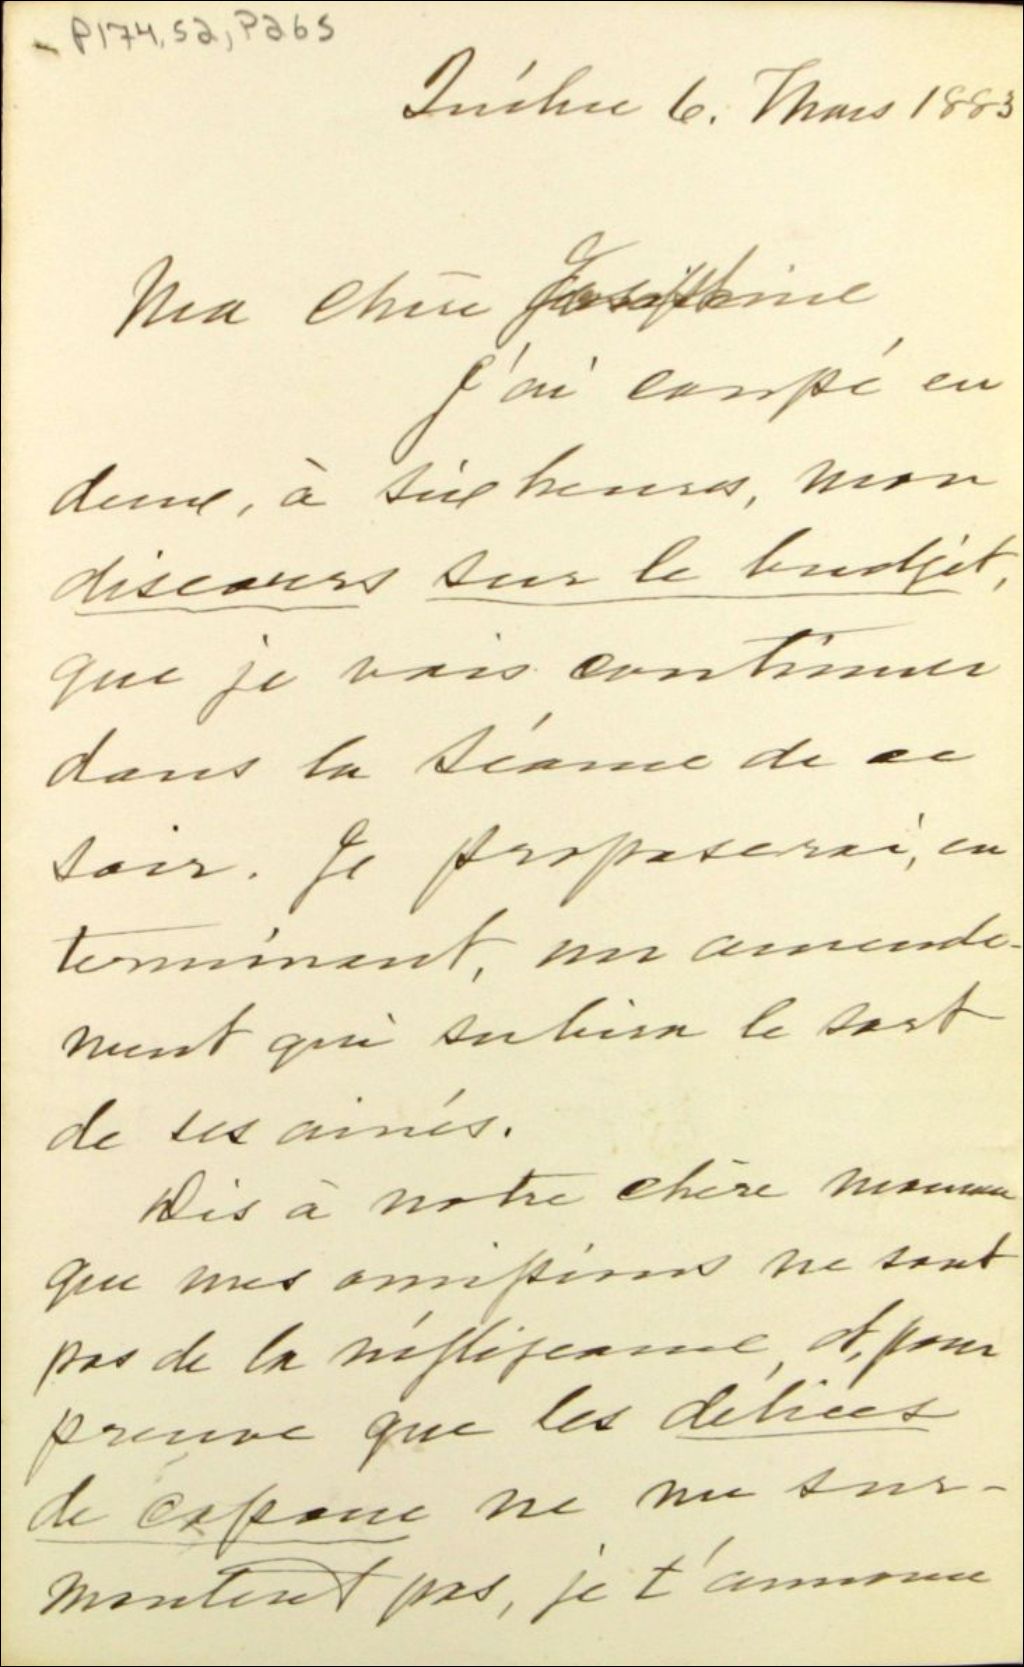 P174, S2, P265
Québec 6. Mars 1883
Ma chère Joséphine
J'ai coupé en
deux, à six heures, mon
discours sur le budjet,
que je vais continuer
dans la séance de ce
soir. Je proposerai, en
terminant, un amende-
ment qui subira le sort
de ses ainés.
Dis à notre chère maman
que mes omissions ne sont
pas de la négligeance, et, pour
preuve que les délices
de capoue ne me sur-
montent pas, je t'annonce